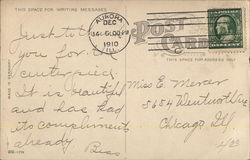 THIS SPACE FOR WRITING MESSAGES
AURORA
DEC
1910
ILL.
POST
CARD
THIS SPACE FOR ADDRESS ONLY
Just to
you for the
centerpiece.
It is beautiful
and has had
its compliment
already
Miss E. Mercer
5654 Wentworth Ave
Chicago, Ill.